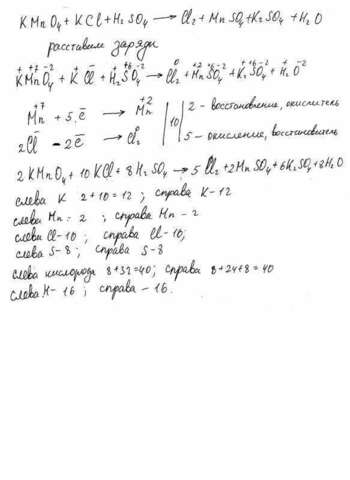 KMnO₄ + KCl + H₂SO₄ → Cl₂ + MnSO₄ + K₂SO₄ + H₂O
расставим заряды
K⁺Mn⁺⁷O₄⁻² + K⁺Cl⁻ + H₂⁺S⁺⁶O₄⁻² → Cl₂⁰ + Mn⁺²S⁺⁶O₄⁻² + K₂⁺S⁺⁶O₄⁻² + H₂⁺O⁻²
Mn⁺⁷ + 5ē → Mn⁺² | 10 | 2 - восстановление, окислитель
2Cl⁻ - 2ē → Cl₂⁰ | 5 - окисление, восстановитель
2KMnO₄ + 10KCl + 8H₂SO₄ → 5Cl₂ + 2MnSO₄ + 6K₂SO₄ + 8H₂O
слева K 2+10=12 ; справа K-12
слева Mn = 2 ; справа Mn - 2
слева Cl-10 ; справа Cl-10;
слева S-8 ; справа S-8
слева кислорода 8+32=40; справа 8+24+8=40
слева H-16 ; справа - 16.